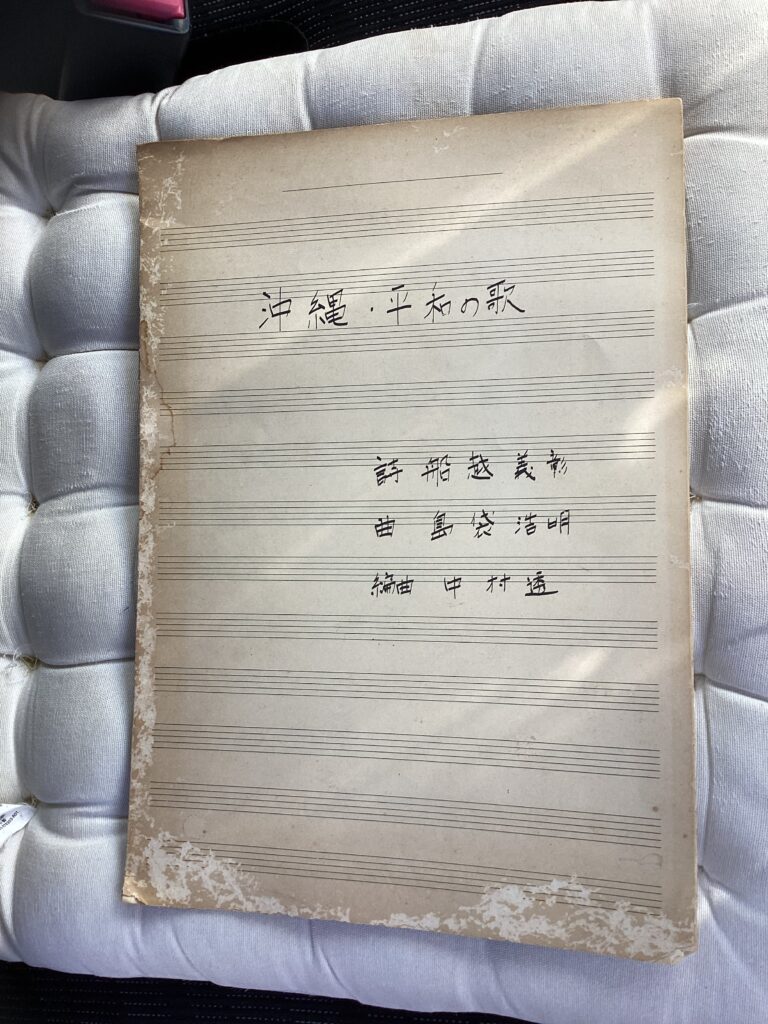 沖縄・平和の歌
詩 船越義彰
曲 島袋浩明
編曲 中村透